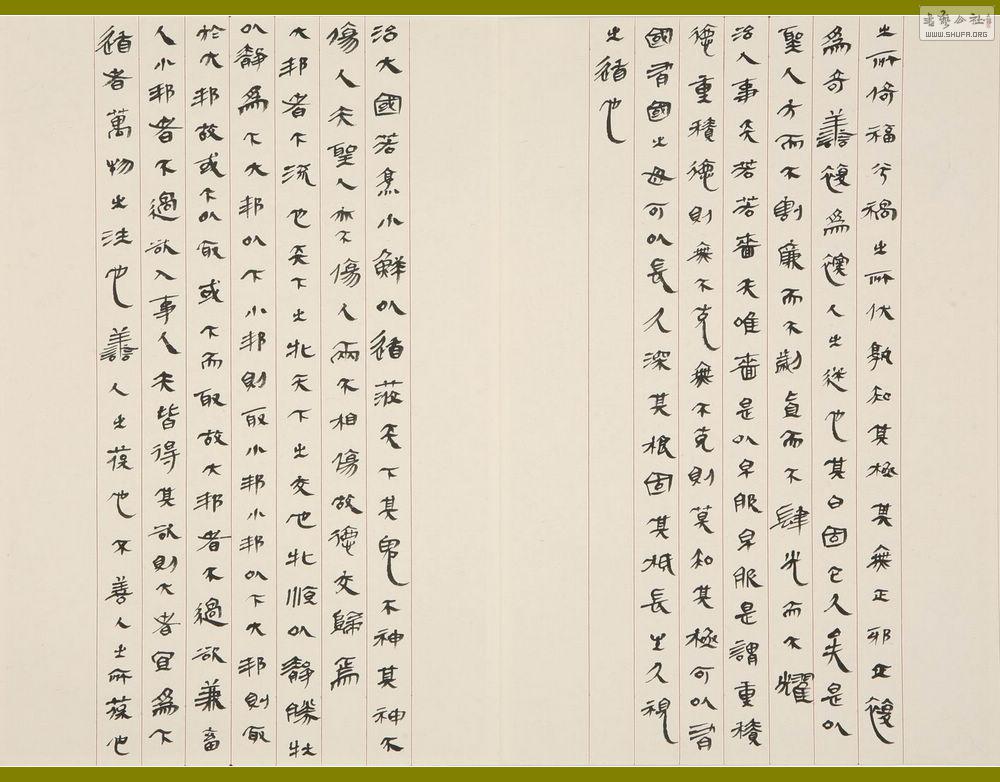 之所倚福兮禍之所伏孰知其極其無正邪正復
為奇善復為人之迷也其日固已久矣是以
聖人方而不割廉而不劌貞而不肆光而不耀
治人事天若若嗇夫唯嗇是以早服早服是謂重積
德重積德則無不克無不克則莫知其極可以有
國有國之母可以長久深其根固其柢長生久視
之道也
治大國若烹小鮮以道莅天下其鬼不神其神不
傷人夫聖人亦不傷人兩不相傷故德交歸焉
大邦者下流也天下之牝天下之交也牝順以靜勝牡
以靜為下大邦以下小邦則取小邦小邦以下大邦則取
於大邦故或下以取或下而取故大邦者不過欲兼畜
人小邦者不過欲入事人夫皆得其欲則大者宜為下
道者萬物之注也善人之葆也不善人之所葆也
書藝公社
WWW.SHUFA.ORG